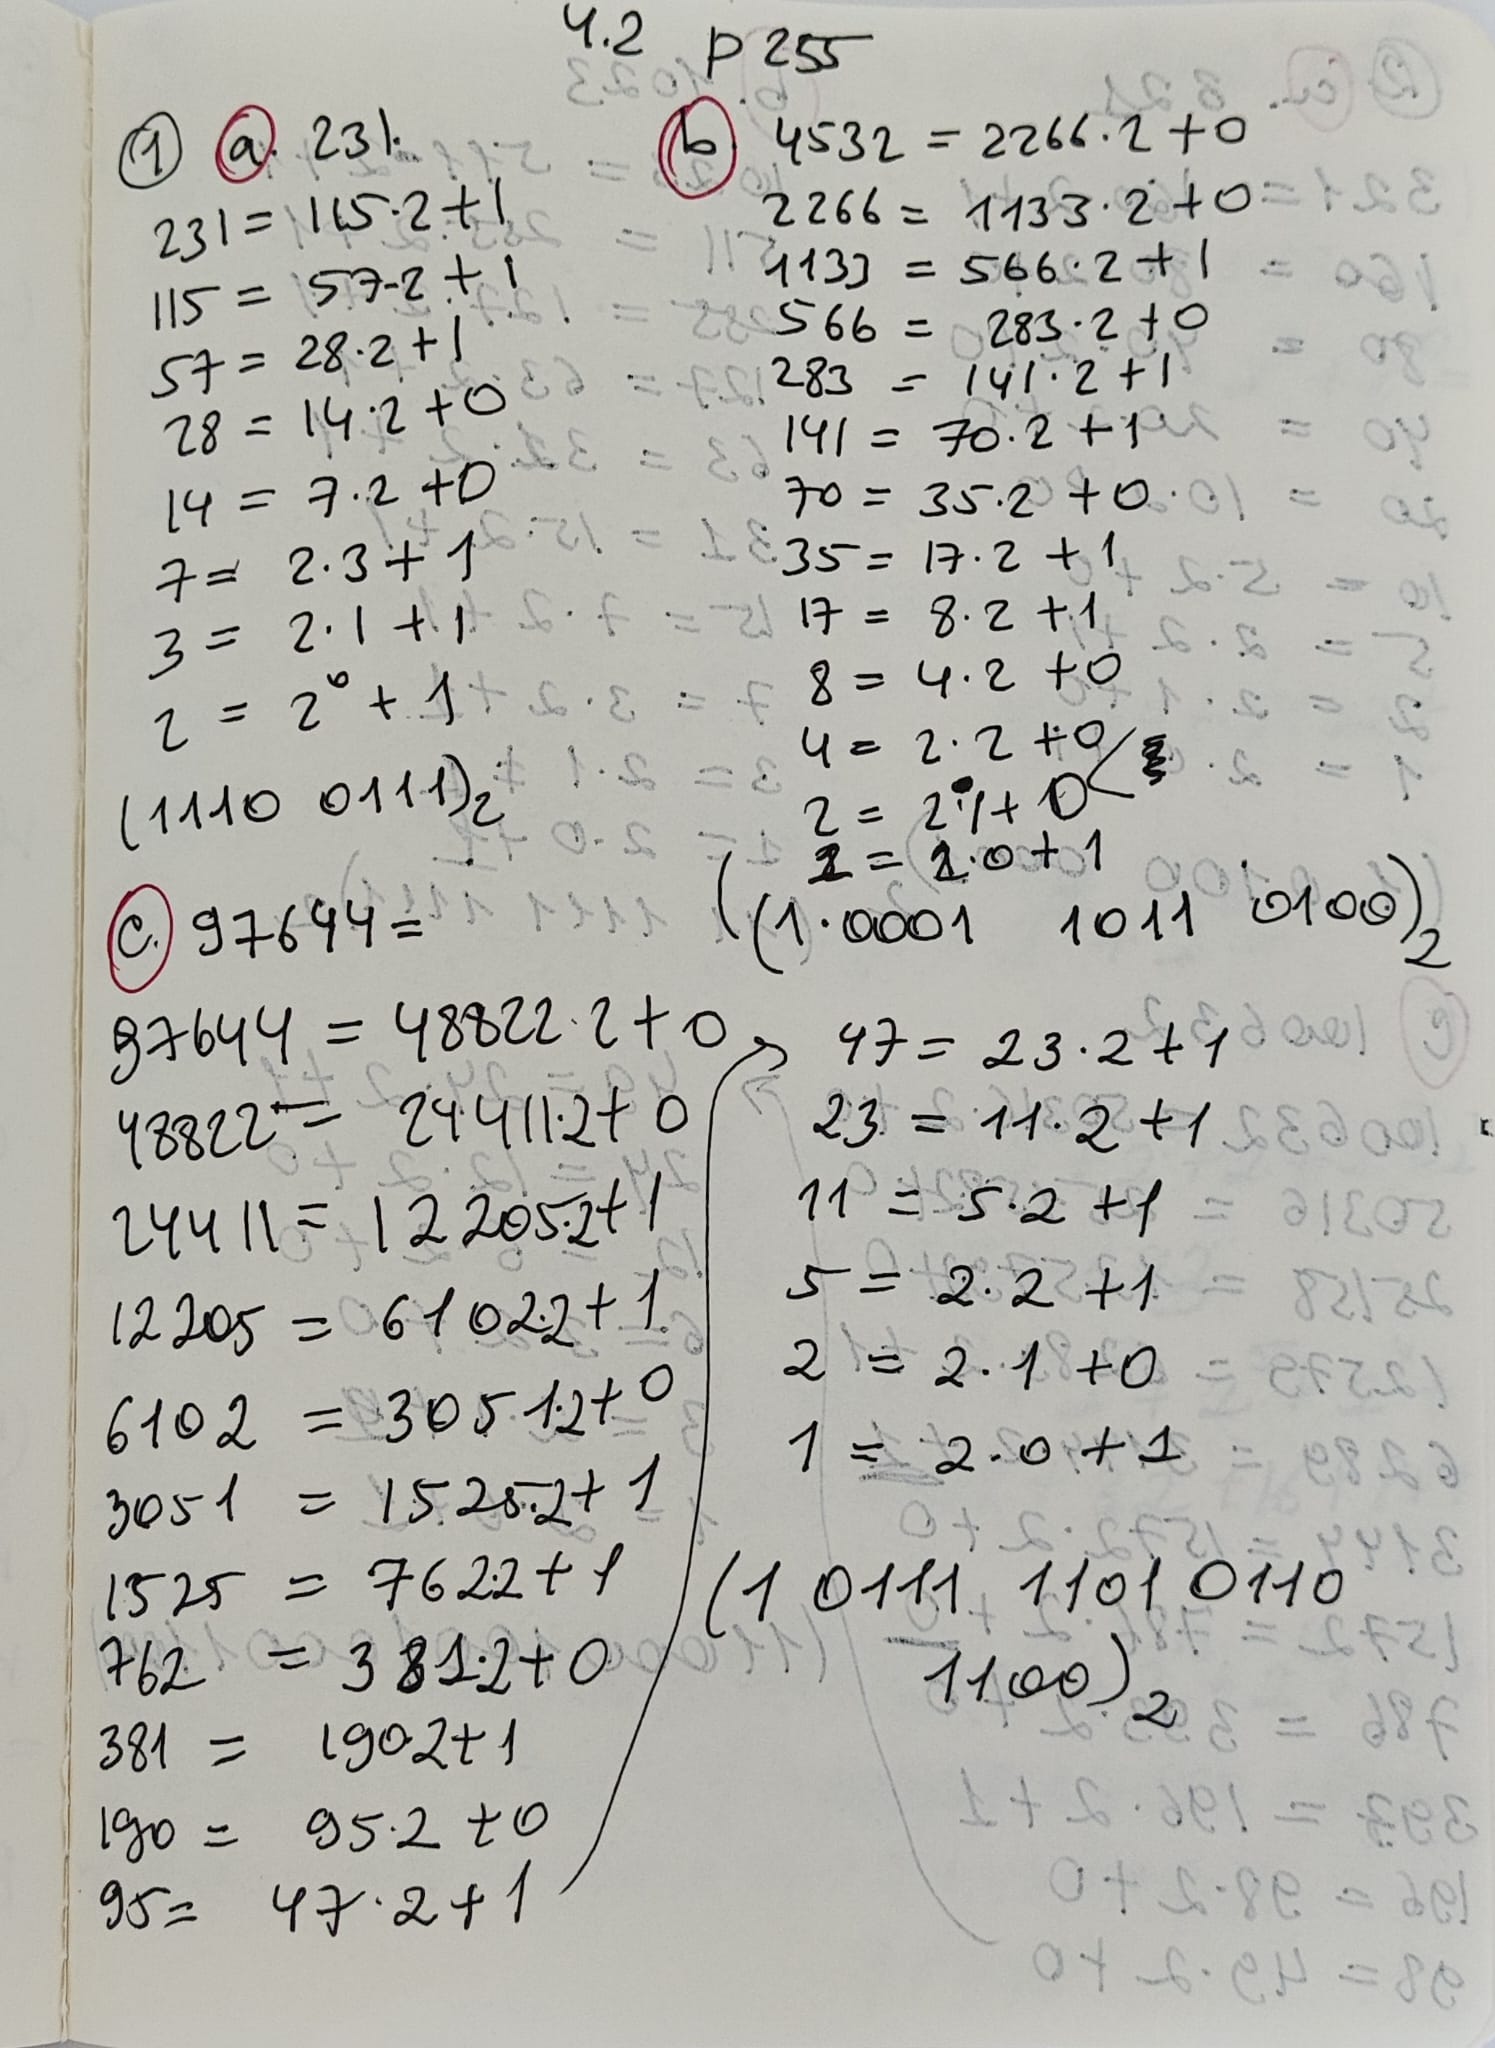 4.2 p 255
① a. 231.
231 = 115·2+1
115 = 57·2+1
57 = 28·2+1
28 = 14·2+0
14 = 7·2+0
7 = 2·3+1
3 = 2·1+1
2 = 2⁰+1
(1110 0111)₂
b. 4532 = 2266·2+0
2266 = 1133·2+0
1133 = 566·2+1
566 = 283·2+0
283 = 141·2+1
141 = 70·2+1
70 = 35·2+0
35 = 17·2+1
17 = 8·2+1
8 = 4·2+0
4 = 2·2+0
2 = 2·1+0
1 = 2·0+1
((1·0001 1011 0100)₂
c. 97644=
97644 = 48822·2+0
48822 = 24411·2+0
24411 = 12205·2+1
12205 = 6102·2+1
6102 = 3051·2+0
3051 = 1525·2+1
1525 = 762·2+1
762 = 381·2+0
381 = 190·2+1
190 = 95·2+0
95 = 47·2+1
47 = 23·2+1
23 = 11·2+1
11 = 5·2+1
5 = 2·2+1
2 = 2·1+0
1 = 2·0+1
(1 0111 1101 0110
1100)₂